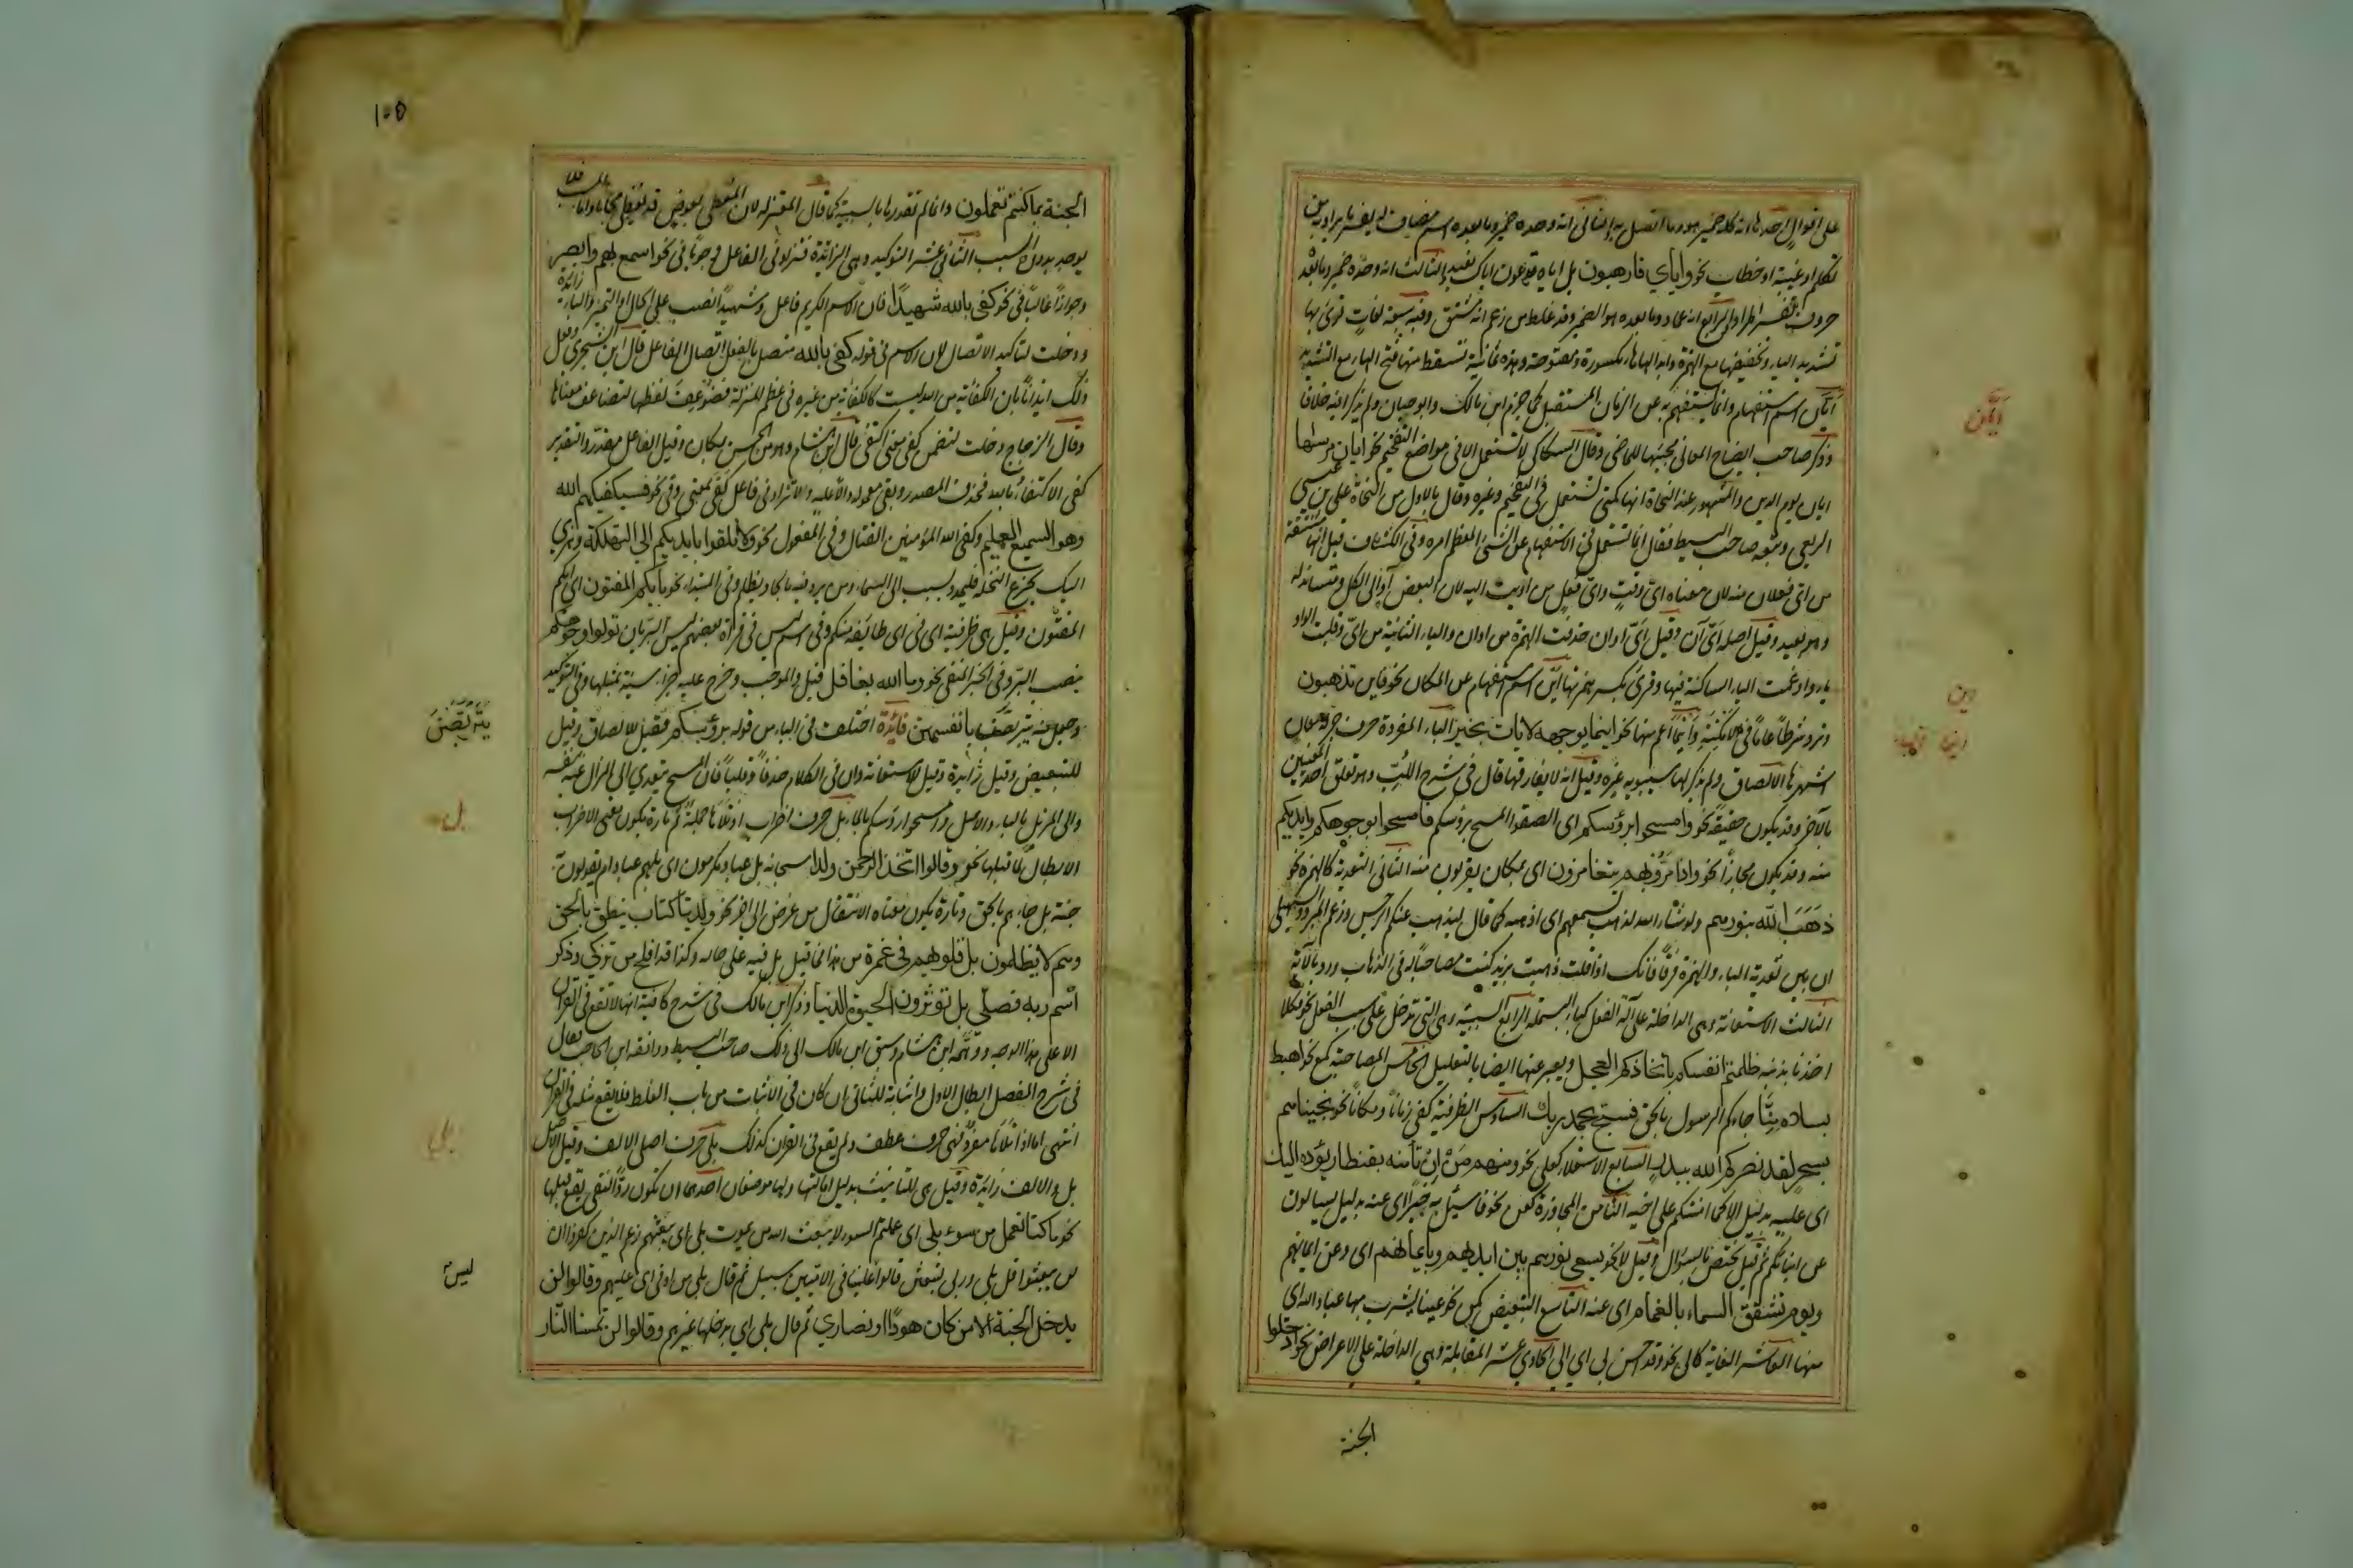 على اقوال احدها انه كله ضمير هو وما اتصل به الثاني انه وحده ضمير وما بعده اسم مضاف له يفسر ما يراد به من
تكلم او غيبة او خطاب نحو واياي فارهبون بل اياه تدعون اياك نعبد والثالث انه وحده ضمير وما بعده
حروف تفسر المراد الرابع انه عماد وما بعده هو الضمير وقد غلط من زعم انه مشتق وفيه سبعة لغات قرئ بها
تشديد الياء وتخفيفها مع الهمزة وابدالها هاء مكسورة ومفتوحة وهذه ثمانية تسقط منها فتح الهاء مع التشديد
ايان اسم استفهام وانما يستفهم به عن الزمان المستقبل كما جزم ابن مالك وابو حيان ولم يذكر فيه خلافا
وذكر صاحب ايضاح المعاني مجيئها للماضي وقال السكاكي لا تستعمل الا في مواضع التفخيم نحو ايان مرسها
ايان يوم الدين والمشهور عند النحاة انها كمتى تستعمل في التفخيم وغيره وقال بالاول من النحاة علي بن عيسى
الربعي وتبعه صاحب البسيط فقال انما تستعمل في الاستفهام عن الشئ المعظم امره وفي الكشاف قيل انها مشتقة
من اي فعلان منه لان معناه اي وقت واي فعل من اويت اليه لان البعض آو الى الكل ومتساند له
وهو بعيد وقيل اصله اي آن وقيل اي اوان حذفت الهمزة من اوان والياء الثانية من اي وقلبت الواو
ياء وادغمت الياء الساكنة فيها وقرئ بكسر همزتها اين اسم استفهام عن المكان نحو فاين تذهبون
وترد شرطا عاما في الامكنة واينما اعم منها نحو اينما يوجهه لا يات بخير الباء المفردة حرف جر له معان
اشهرها الالصاق ولم يذكر لها سيبويه غيره وقيل انه لا يفارقها قال في شرح اللب وهو تعلق احد المعنيين
بالآخر وقد يكون حقيقة نحو وامسحوا برؤسكم اى الصقوا المسح برؤسكم فامسحوا بوجوهكم وايديكم
منه وقد يكون مجازا نحو واذا مروا بهم يتغامزون اى بمكان يقربون منه الثاني التعدية كالهمزة نحو
ذهب الله بنورهم ولو شاء الله لذهب بسمعهم اى اذهبه كما قال ليذهب عنكم الرجس وزعم المبرد والسهيلي
ان بين تعدية الباء والهمزة فرقا فانك اذا قلت ذهبت بزيد كنت مصاحبا له في الذهاب ورد بالآية
الثالث الاستعانة وهي الداخلة على آلة الفعل كباء البسملة الرابع السببية وهى التى تدخل على سبب الفعل نحو فكلا
اخذنا بذنبه ظلمتم انفسكم باتخاذكم العجل ويعبر عنها ايضا بالتعليل الخامس المصاحبة كمع نحو اهبط
بسلام منا جاءكم الرسول بالحق فسبح بحمد ربك السادس الظرفية كفي زمانا ومكانا نحو نجيناهم
بسحر لقد نصركم الله ببدر السابع الاستعلاء كعلى نحو ومنهم من ان تأمنه بقنطار يؤده اليك
اى عليه بدليل الا كما امنتكم على اخيه الثامن المجاوزة كعن نحو فاسئل به خبيرا اى عنه بدليل يسالون
عن انبائكم ثم قيل تختص بالسؤال وقيل لا نحو يسعى نورهم بين ايديهم وبايمانهم اى وعن ايمانهم
ويوم تشقق السماء بالغمام اى عنه التاسع التبعيض كمن نحو عينا يشرب بها عباد الله اى
منها العاشر الغاية كالى نحو وقد احسن بى اي الي الحادي عشر المقابلة وهي الداخلة على الاعراض نحو ادخلوا
الجنة
ايان
اين
١٠٥
الجنة بما كنتم تعملون وانما لم نقدرها باء السببية كما قال المعتزلة لان المعطى بعوض قد يعطى مجانا واما المسبب فلا
يوجد بدون السبب الثاني عشر التوكيد وهي الزائدة فتزاد في الفاعل وجوبا في نحو اسمع بهم وابصر
وجوازا غالبا في نحو كفى بالله شهيدا فان الاسم الكريم فاعل وشهيدا نصب على الحال او التمييز والباء زائدة
ودخلت لتأكيد الاتصال لان الاسم في قوله كفى بالله متصل بالفعل اتصال الفاعل قال ابن الشجري وفعل
ذلك ايذانا بان الكفاية من الله ليست كالكفاية من غيره في عظم المنزلة فضوعف لفظها لتضاعف معناها
وقال الزجاج دخلت لتضمن كفى معنى اكتفى قال ابن هشام وهو من الحسن بمكان وقيل الفاعل مقدر والتقدير
كفى الاكتفاء بالله فحذف المصدر وبقى معموله دالا عليه ولا تزاد في فاعل كفى بمعنى وقى نحو فسيكفيكهم الله
وهو السميع العليم وكفى الله المؤمنين القتال وفي المفعول نحو ولا تلقوا بايديكم الي التهلكة وهزي
اليك بجذع النخلة فليمدد بسبب الى السماء ومن يرد فيه بالحاد بظلم وفي المبتدا نحو بايكم المفتون اى ايكم
المفتون وقيل هى ظرفية اى في اى طائفة منكم وفي اسم ليس في قراءة بعضهم ليس البر بان تولوا وجوهكم
بنصب البر وفي الخبر المنفي نحو وما الله بغافل قيل والموجب وخرج عليه جزاء سيئة بمثلها وفى التوكيد
وجعل منه يتربصن بانفسهن فائدة اختلف في الباء من قوله برؤسكم فقيل للالصاق وقيل
للتبعيض وقيل زايدة وقيل للاستعانة وان في الكلام حذفا وقلبا فان المسح يتعدي الى المزال عنه بنفسه
والى المزيل بالباء والاصل وامسحوا رؤسكم بالماء بل حرف اضراب اذا تلاها جملة ثم تارة يكون معنى الاضراب
الابطال لما قبلها نحو وقالوا اتخذ الرحمن ولدا سبحانه بل عباد مكرمون اى بل هم عباد ام يقولون به
جنة بل جاءهم بالحق وتارة يكون معناه الانتقال من غرض الى اخر نحو ولدينا كتاب ينطق بالحق
وهم لا يظلمون بل قلوبهم في غمرة من هذا فما قبل بل فيه على حاله وكذا قد افلح من تزكى وذكر
اسم ربه فصلى بل تؤثرون الحيوة الدنيا وذكر ابن مالك في شرح كافيته انها لا تقع في القرآن
الا على هذا الوجه ووهمه ابن هشام وسبق ابن مالك الى ذلك صاحب البسيط ووافقه ابن الحاجب فقال
في شرح المفصل ابطال الاول واثباته للثاني ان كان في الاثبات من باب الغلط فلا يقع مثله في القرآن
انتهى اما اذا تلاها مفرد فهى حرف عطف ولم يقع في القرآن كذلك بلى حرف اصلى الالف وقيل الاصل
بل والالف زائدة وقيل هى للتانيث بدليل امالتها ولها موضعان احدهما ان تكون ردا لنفى يقع قبلها
نحو ما كنا نعمل من سوء بلى اى عملتم السوء لا يبعث الله من يموت بلى اى يبعثهم زعم الذين كفروا ان
لن يبعثوا قل بلى وربى لتبعثن قالوا ليس علينا في الاميين سبيل ثم قال بلى من اوفى اى عليهم وقالوا لن
يدخل الجنة الا من كان هودا او نصاري ثم قال بلى اي يدخلها غيرهم وقالوا لن تمسنا النار
يتربصن
بل
بلى
ليس